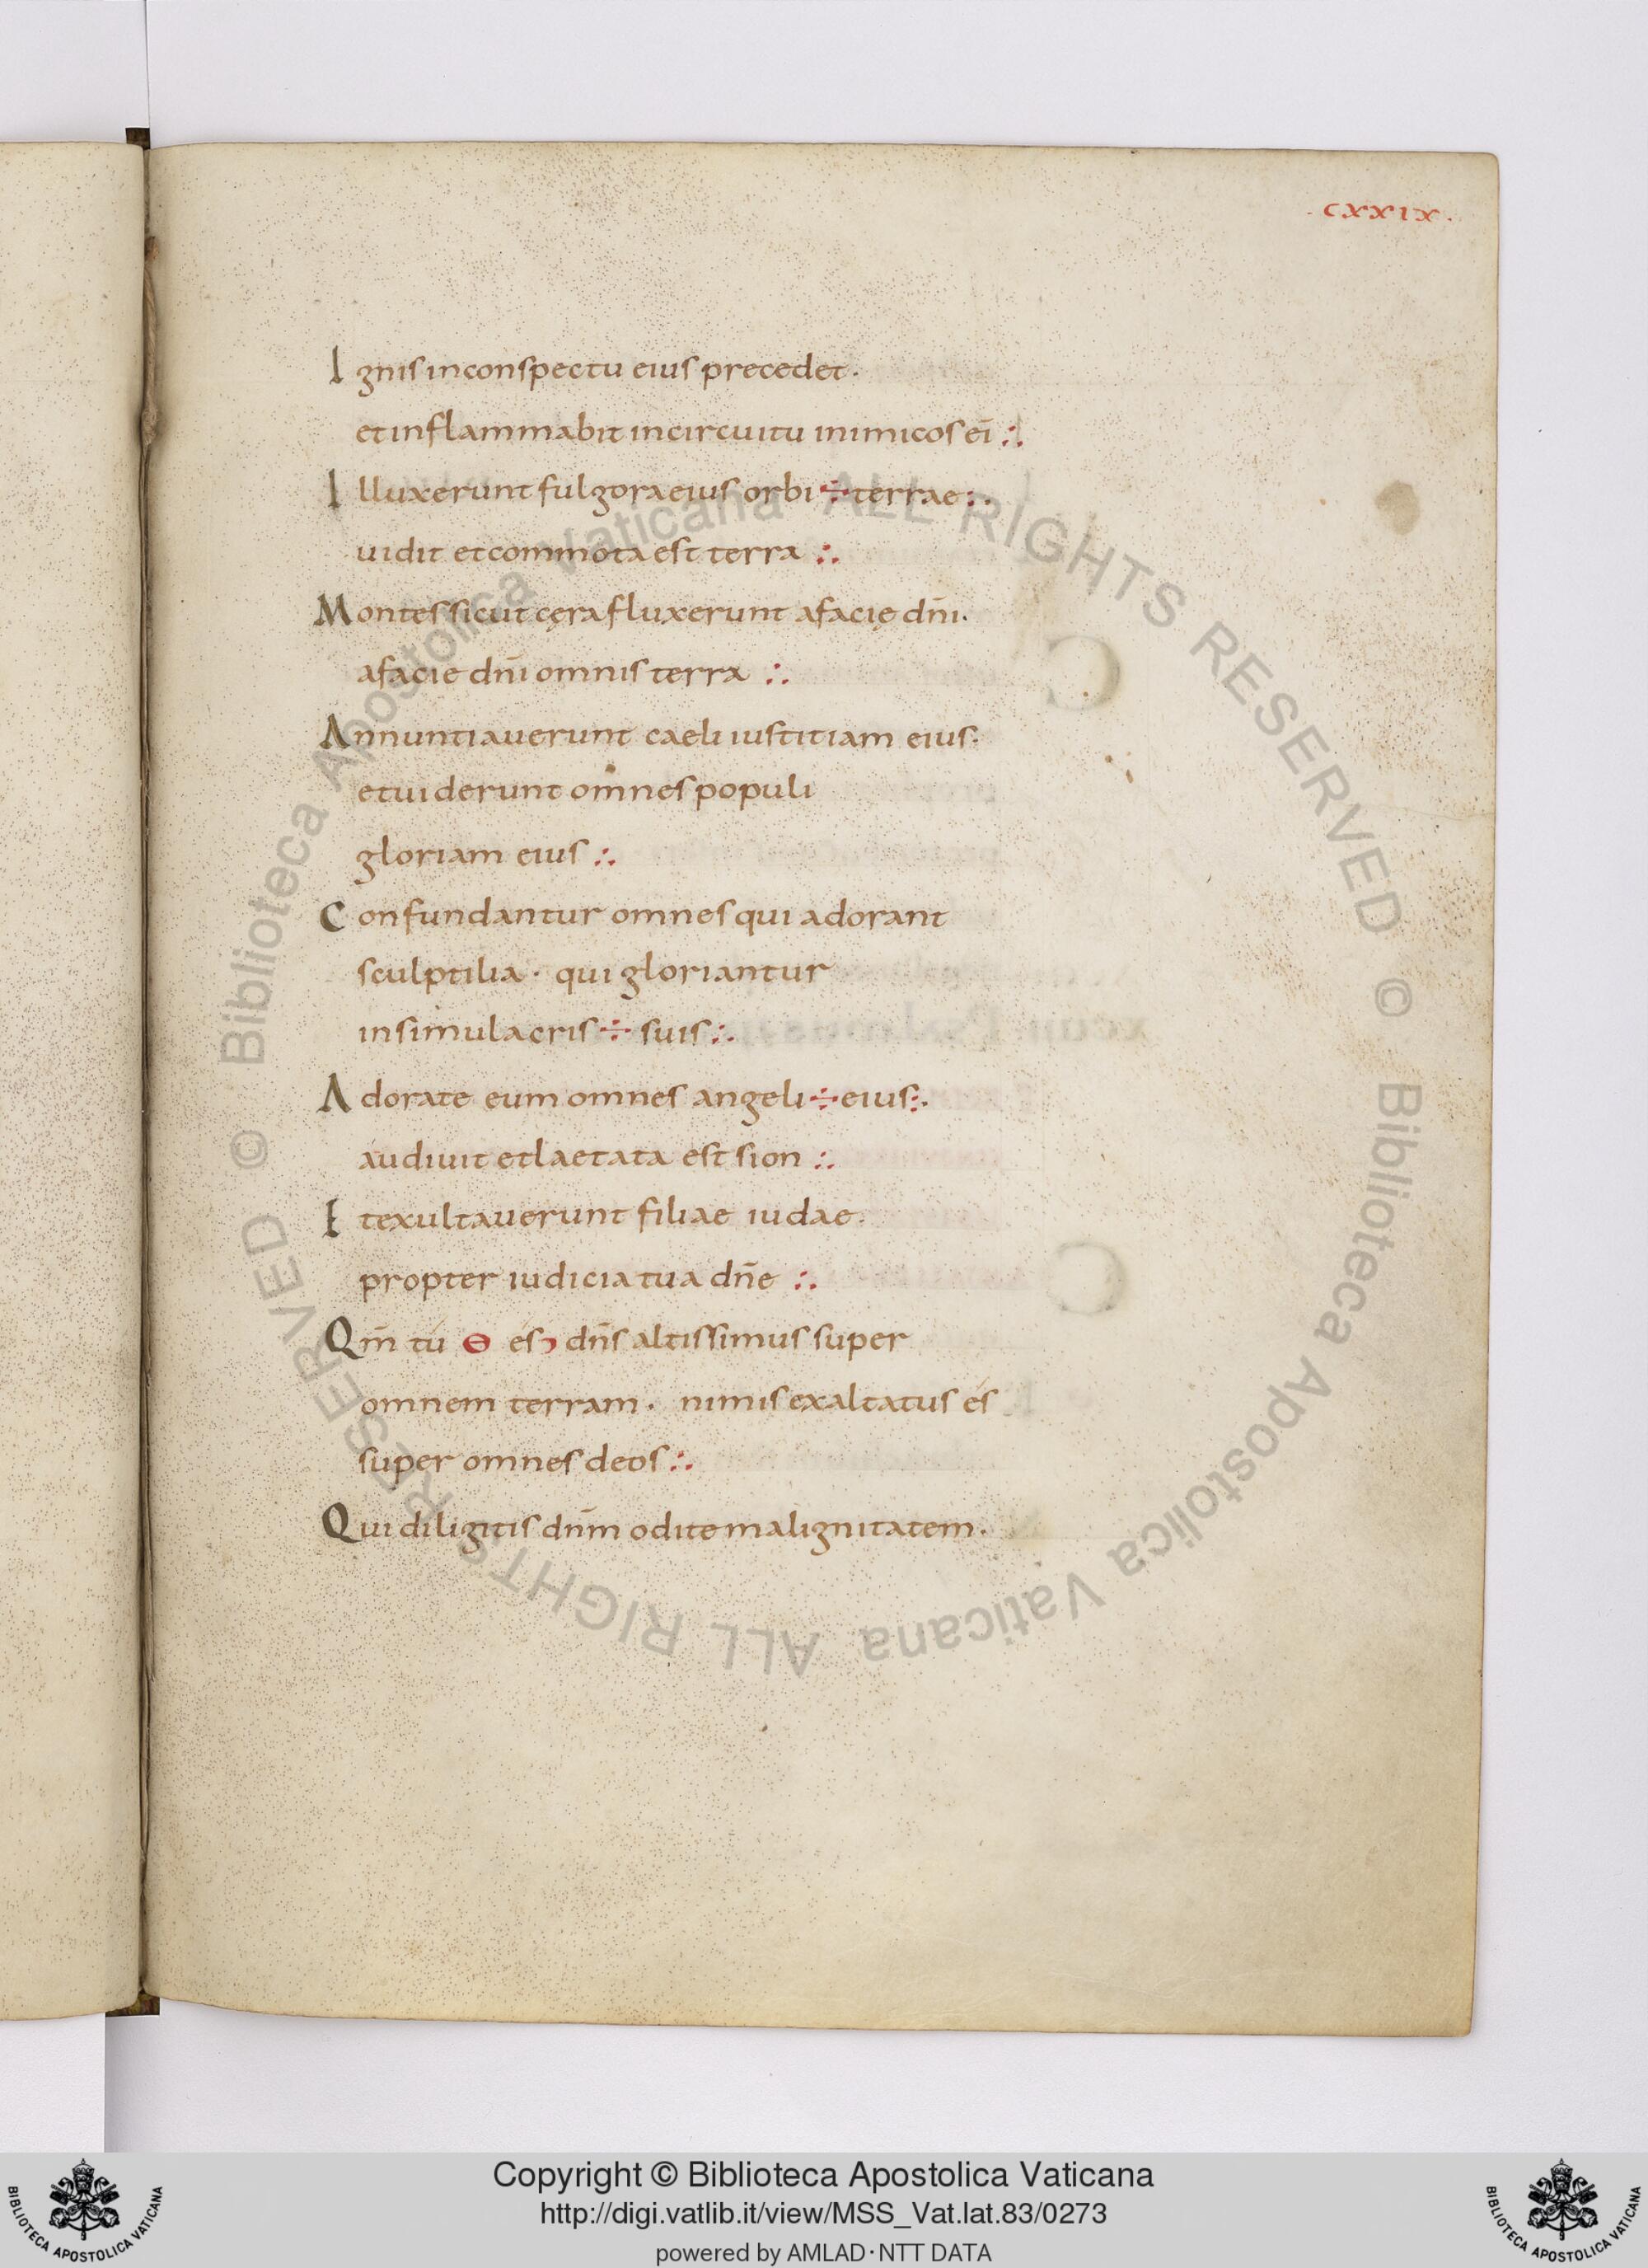 . CXXIX .
Ignis in conspectu eius precedet.
et inflammabit in circuitu inimicos ei̅ ∴
Illuxerunt fulgora eius orbi ÷ terrae :.
uidit et commota est terra ∴
Montes sicut cęra fluxerunt a facię dn̅i.
a facie dn̅i omnis terra ∴
Annuntiauerunt caeli iustitiam eius.
et uiderunt omnes populi
gloriam eius ∴
Confundantur omnes qui adorant
sculptilia · qui gloriantur
in simulacris ÷ suis ∴
Adorate eum omnes angeli ÷ eius :.
audiuit et laetata est sion ∴
Et exultauerunt filiae iudae.
propter iudicia tua dn̅e ∴
Qm̅ tú ɵ és dn̅s altissimus super
omnem terram . nimis exaltatus és
super omnes deos ∴
Qui diligitis dn̅m odite malignitatem.
© Biblioteca Apostolica Vaticana ALL RIGHTS RESERVED © Biblioteca Apostolica Vaticana ALL RIGHTS RESERVED
Copyright © Biblioteca Apostolica Vaticana
http://digi.vatlib.it/view/MSS_Vat.lat.83/0273
powered by AMLAD·NTT DATA
BIBLIOTECA APOSTOLICA VATICANA
BIBLIOTECA APOSTOLICA VATICANA